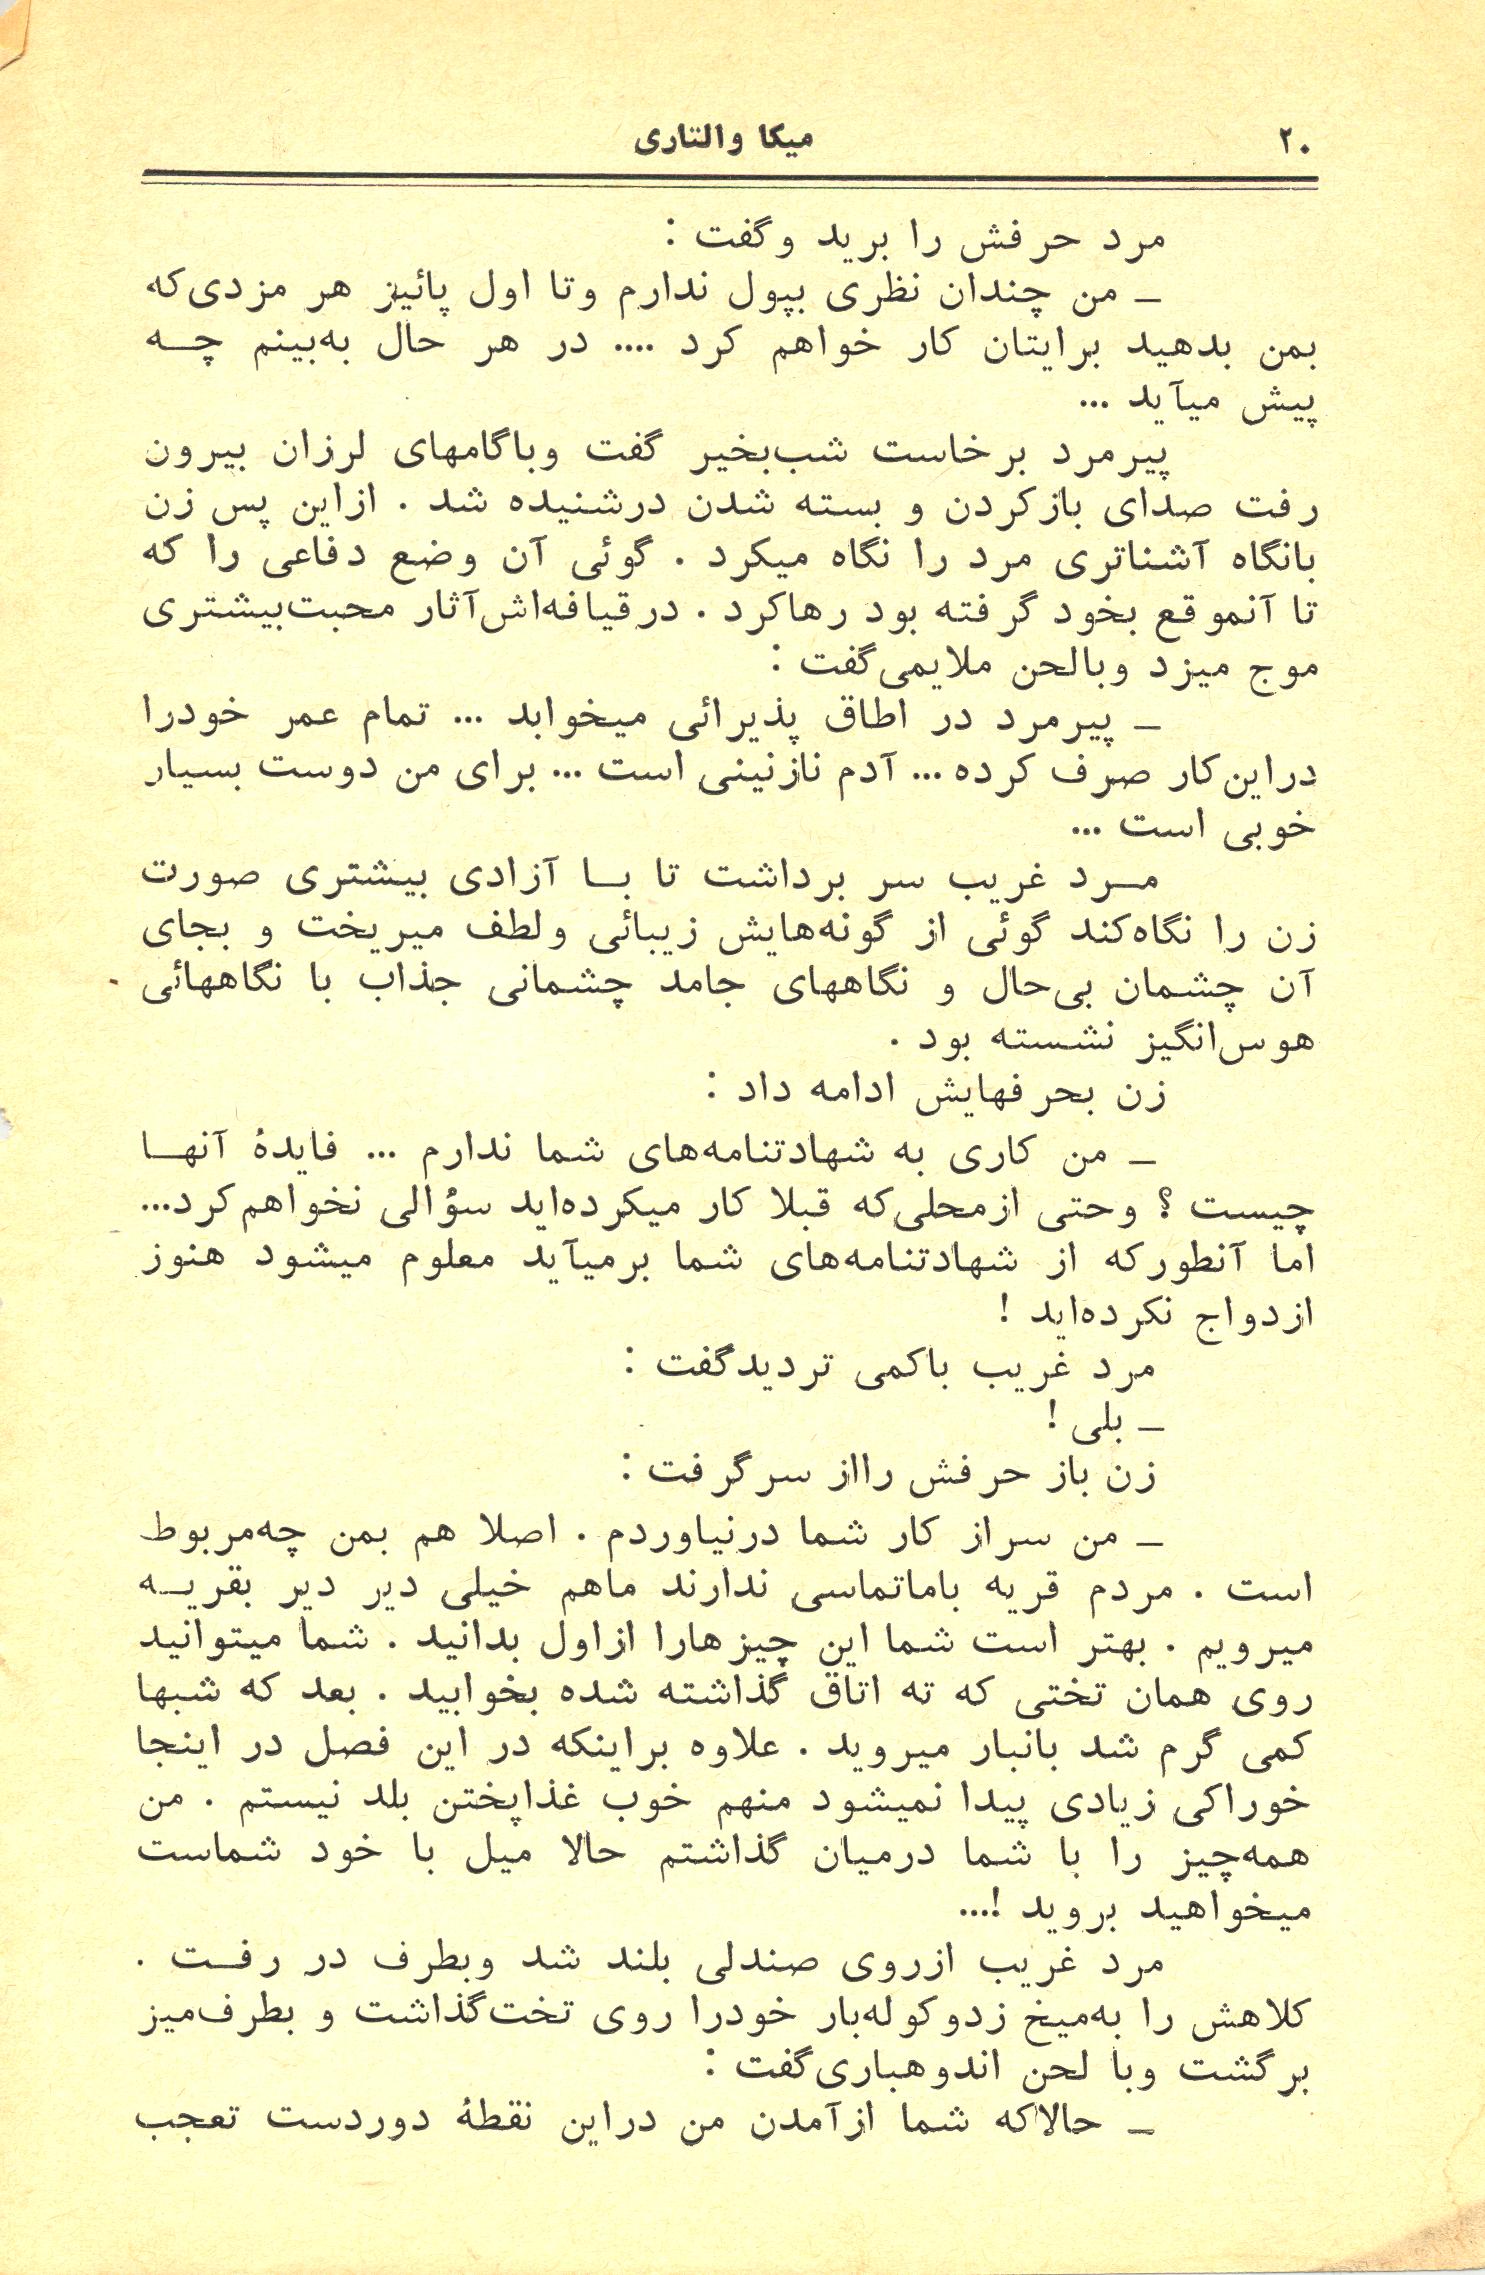 ۲۰
میکا والتاری
مرد حرفش را برید وگفت :
ـ من چندان نظری بپول ندارم وتا اول پائیز هر مزدی‌که
بمن بدهید برایتان کار خواهم کرد .... در هر حال به‌بینم چه
پیش میآید ...
پیرمرد برخاست شب‌بخیر گفت وباگامهای لرزان بیرون
رفت صدای بازکردن و بسته شدن درشنیده شد . ازاین پس زن
بانگاه آشناتری مرد را نگاه میکرد . گوئی آن وضع دفاعی را که
تا آنموقع بخود گرفته بود رهاکرد . درقیافه‌اش‌آثار محبت‌بیشتری
موج میزد وبالحن ملایمی‌گفت :
ـ پیرمرد در اطاق پذیرائی میخوابد ... تمام عمر خودرا
دراین‌کار صرف کرده ... آدم نازنینی است ... برای من دوست بسیار
خوبی است ...
مرد غریب سر برداشت تا با آزادی بیشتری صورت
زن را نگاه‌کند گوئی از گونه‌هایش زیبائی ولطف میریخت و بجای
آن چشمان بی‌حال و نگاههای جامد چشمانی جذاب با نگاههائی
هوس‌انگیز نشسته بود .
زن بحرفهایش ادامه داد :
ـ من کاری به شهادتنامه‌های شما ندارم ... فایدهٔ آنها
چیست ؟ وحتی ازمحلی‌که قبلا کار میکرده‌اید سؤالی نخواهم‌کرد...
اما آنطورکه از شهادتنامه‌های شما برمیآید معلوم میشود هنوز
ازدواج نکرده‌اید !
مرد غریب باکمی تردیدگفت :
ـ بلی !
زن باز حرفش رااز سرگرفت :
ـ من سراز کار شما درنیاوردم . اصلا هم بمن چه‌مربوط
است . مردم قریه باماتماسی ندارند ماهم خیلی دیر دیر بقریه
میرویم . بهتر است شما این چیزهارا ازاول بدانید . شما میتوانید
روی همان تختی که ته اتاق گذاشته شده بخوابید . بعد که شبها
کمی گرم شد بانبار میروید . علاوه براینکه در این فصل در اینجا
خوراکی زیادی پیدا نمیشود منهم خوب غذاپختن بلد نیستم . من
همه‌چیز را با شما درمیان گذاشتم حالا میل با خود شماست
میخواهید بروید !...
مرد غریب ازروی صندلی بلند شد وبطرف در رفت .
کلاهش را به‌میخ زدوکوله‌بار خودرا روی تخت‌گذاشت و بطرف‌میز
برگشت وبا لحن اندوهباری‌گفت :
ـ حالاکه شما ازآمدن من دراین نقطهٔ دوردست تعجب